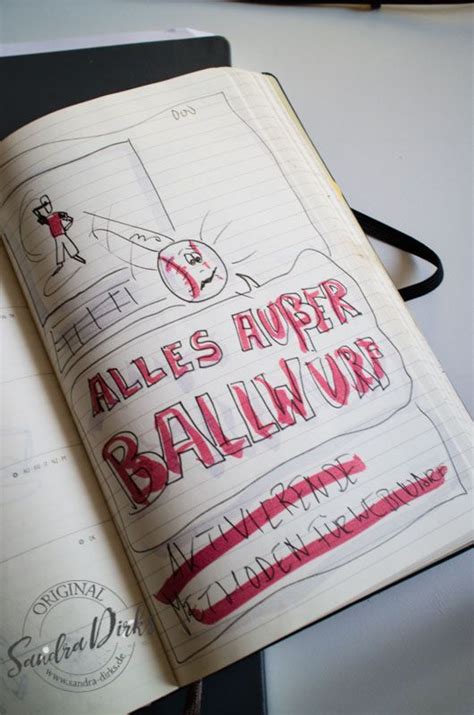 ALLES AUßER
BALLWURF
AKTIVIERENDE
METHODEN FÜR WEBINARE
ORIGINAL
Sandra Dirks
www.sandra-dirks.de